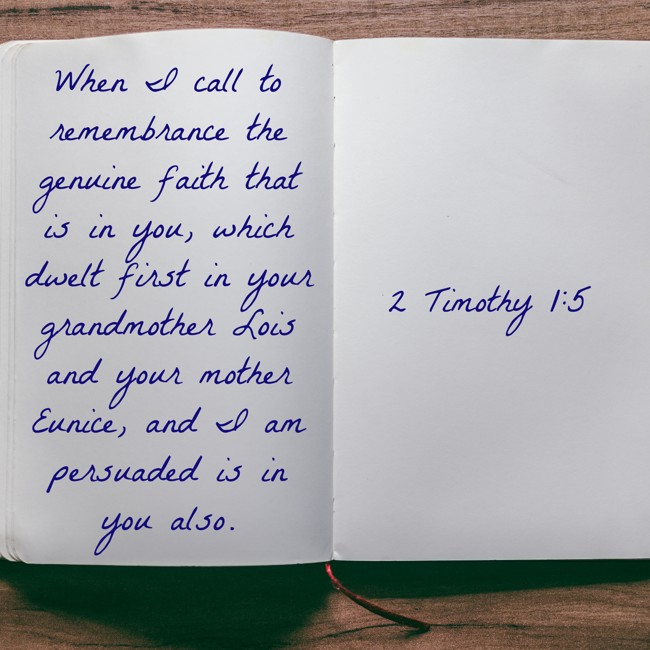 When I call to
remembrance the
genuine faith that
is in you, which
dwelt first in your
grandmother Lois
and your mother
Eunice, and I am
persuaded is in
you also.
2 Timothy 1:5